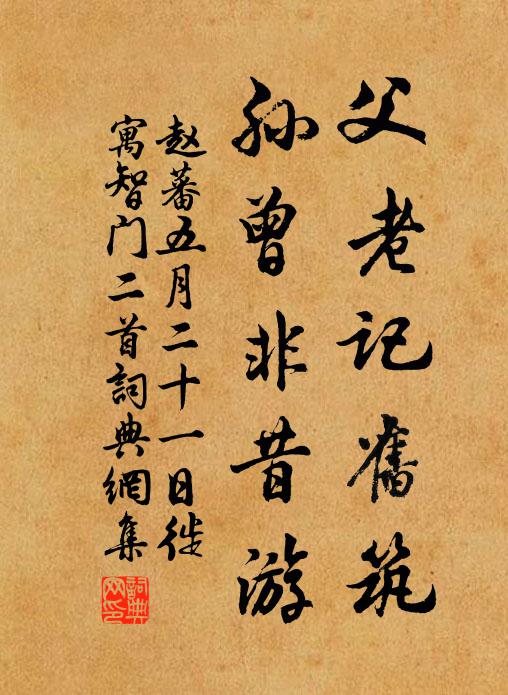 父老记舊筑
孙曾非昔游
赵蕃五月二十一日徙
寓智门二首詞典網集
詞典
网印